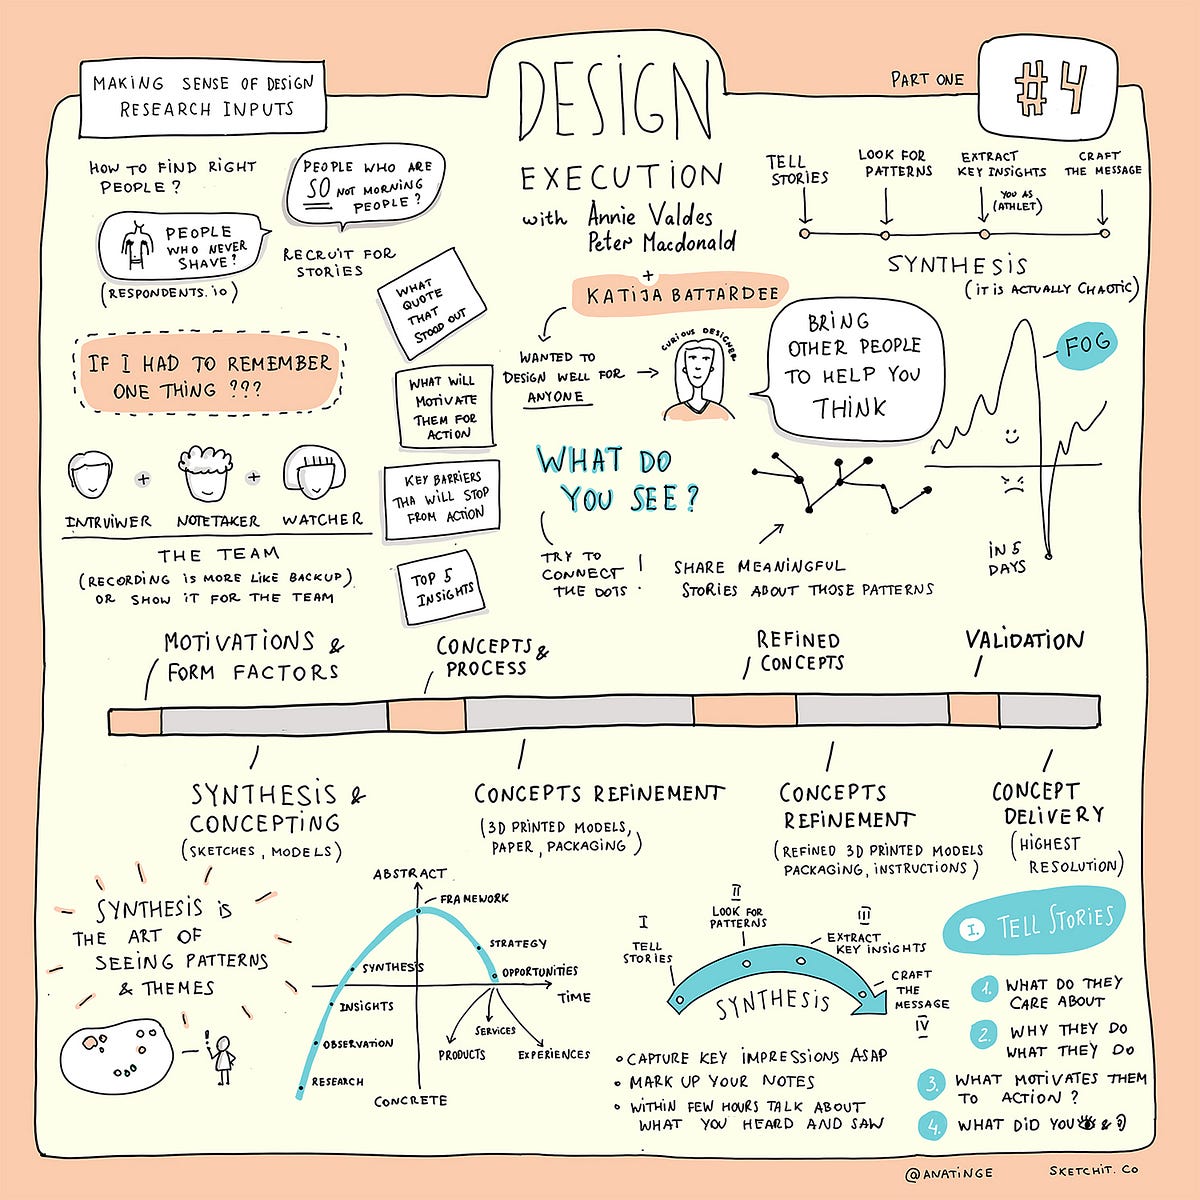 MAKING SENSE OF DESIGN
RESEARCH INPUTS
DESIGN
EXECUTION
with Annie Valdes
Peter Macdonald
+
KATIJA BATTARDEE
PART ONE
#4
HOW TO FIND RIGHT
PEOPLE?
PEOPLE WHO ARE
SO NOT MORNING
PEOPLE?
PEOPLE
WHO NEVER
SHAVE?
(RESPONDENTS.io)
RECRUIT FOR
STORIES
TELL
STORIES
LOOK FOR
PATTERNS
EXTRACT
KEY INSIGHTS
YOU AS
(ATHLET)
CRAFT
THE MESSAGE
SYNTHESIS
(IT IS ACTUALLY CHAOTIC)
IF I HAD TO REMEMBER
ONE THING ???
WHAT
QUOTE
THAT
STOOD OUT
WHAT WILL
MOTIVATE
THEM FOR
ACTION
KEY BARRIERS
THA WILL STOP
FROM ACTION
TOP 5
INSIGHTS
WANTED TO
DESIGN WELL FOR
ANYONE
CURIOUS DESIGNER
BRING
OTHER PEOPLE
TO HELP YOU
THINK
FOG
IN 5
DAYS
INTRUIWER + NOTETAKER + WATCHER
THE TEAM
(RECORDING IS MORE LIKE BACKUP)
OR SHOW IT FOR THE TEAM
WHAT DO
YOU SEE?
TRY TO
CONNECT
THE DOTS !
SHARE MEANINGFUL
STORIES ABOUT THOSE PATTERNS
MOTIVATIONS &
FORM FACTORS
CONCEPTS &
PROCESS
REFINED
CONCEPTS
VALIDATION
SYNTHESIS &
CONCEPTING
(SKETCHES, MODELS)
CONCEPTS REFINEMENT
(3D PRINTED MODELS,
PAPER, PACKAGING)
CONCEPTS
REFINEMENT
(REFINED 3D PRINTED MODELS
PACKAGING, INSTRUCTIONS)
CONCEPT
DELIVERY
(HIGHEST
RESOLUTION)
SYNTHESIS IS
THE ART OF
SEEING PATTERNS
& THEMES
ABSTRACT
FRAMEWORK
STRATEGY
SYNTHESIS
OPPORTUNITIES
TIME
INSIGHTS
OBSERVATION
RESEARCH
SERVICES
PRODUCTS
EXPERIENCES
CONCRETE
I
TELL
STORIES
II
LOOK FOR
PATTERNS
III
EXTRACT
KEY INSIGHTS
CRAFT
THE
MESSAGE
IV
SYNTHESIS
CAPTURE KEY IMPRESSIONS ASAP
MARK UP YOUR NOTES
WITHIN FEW HOURS TALK ABOUT
WHAT YOU HEARD AND SAW
I. TELL STORIES
1. WHAT DO THEY
CARE ABOUT
2. WHY THEY DO
WHAT THEY DO
3. WHAT MOTIVATES THEM
TO ACTION?
4. WHAT DID YOU &
@ANATINGE
SKETCHIT.CO